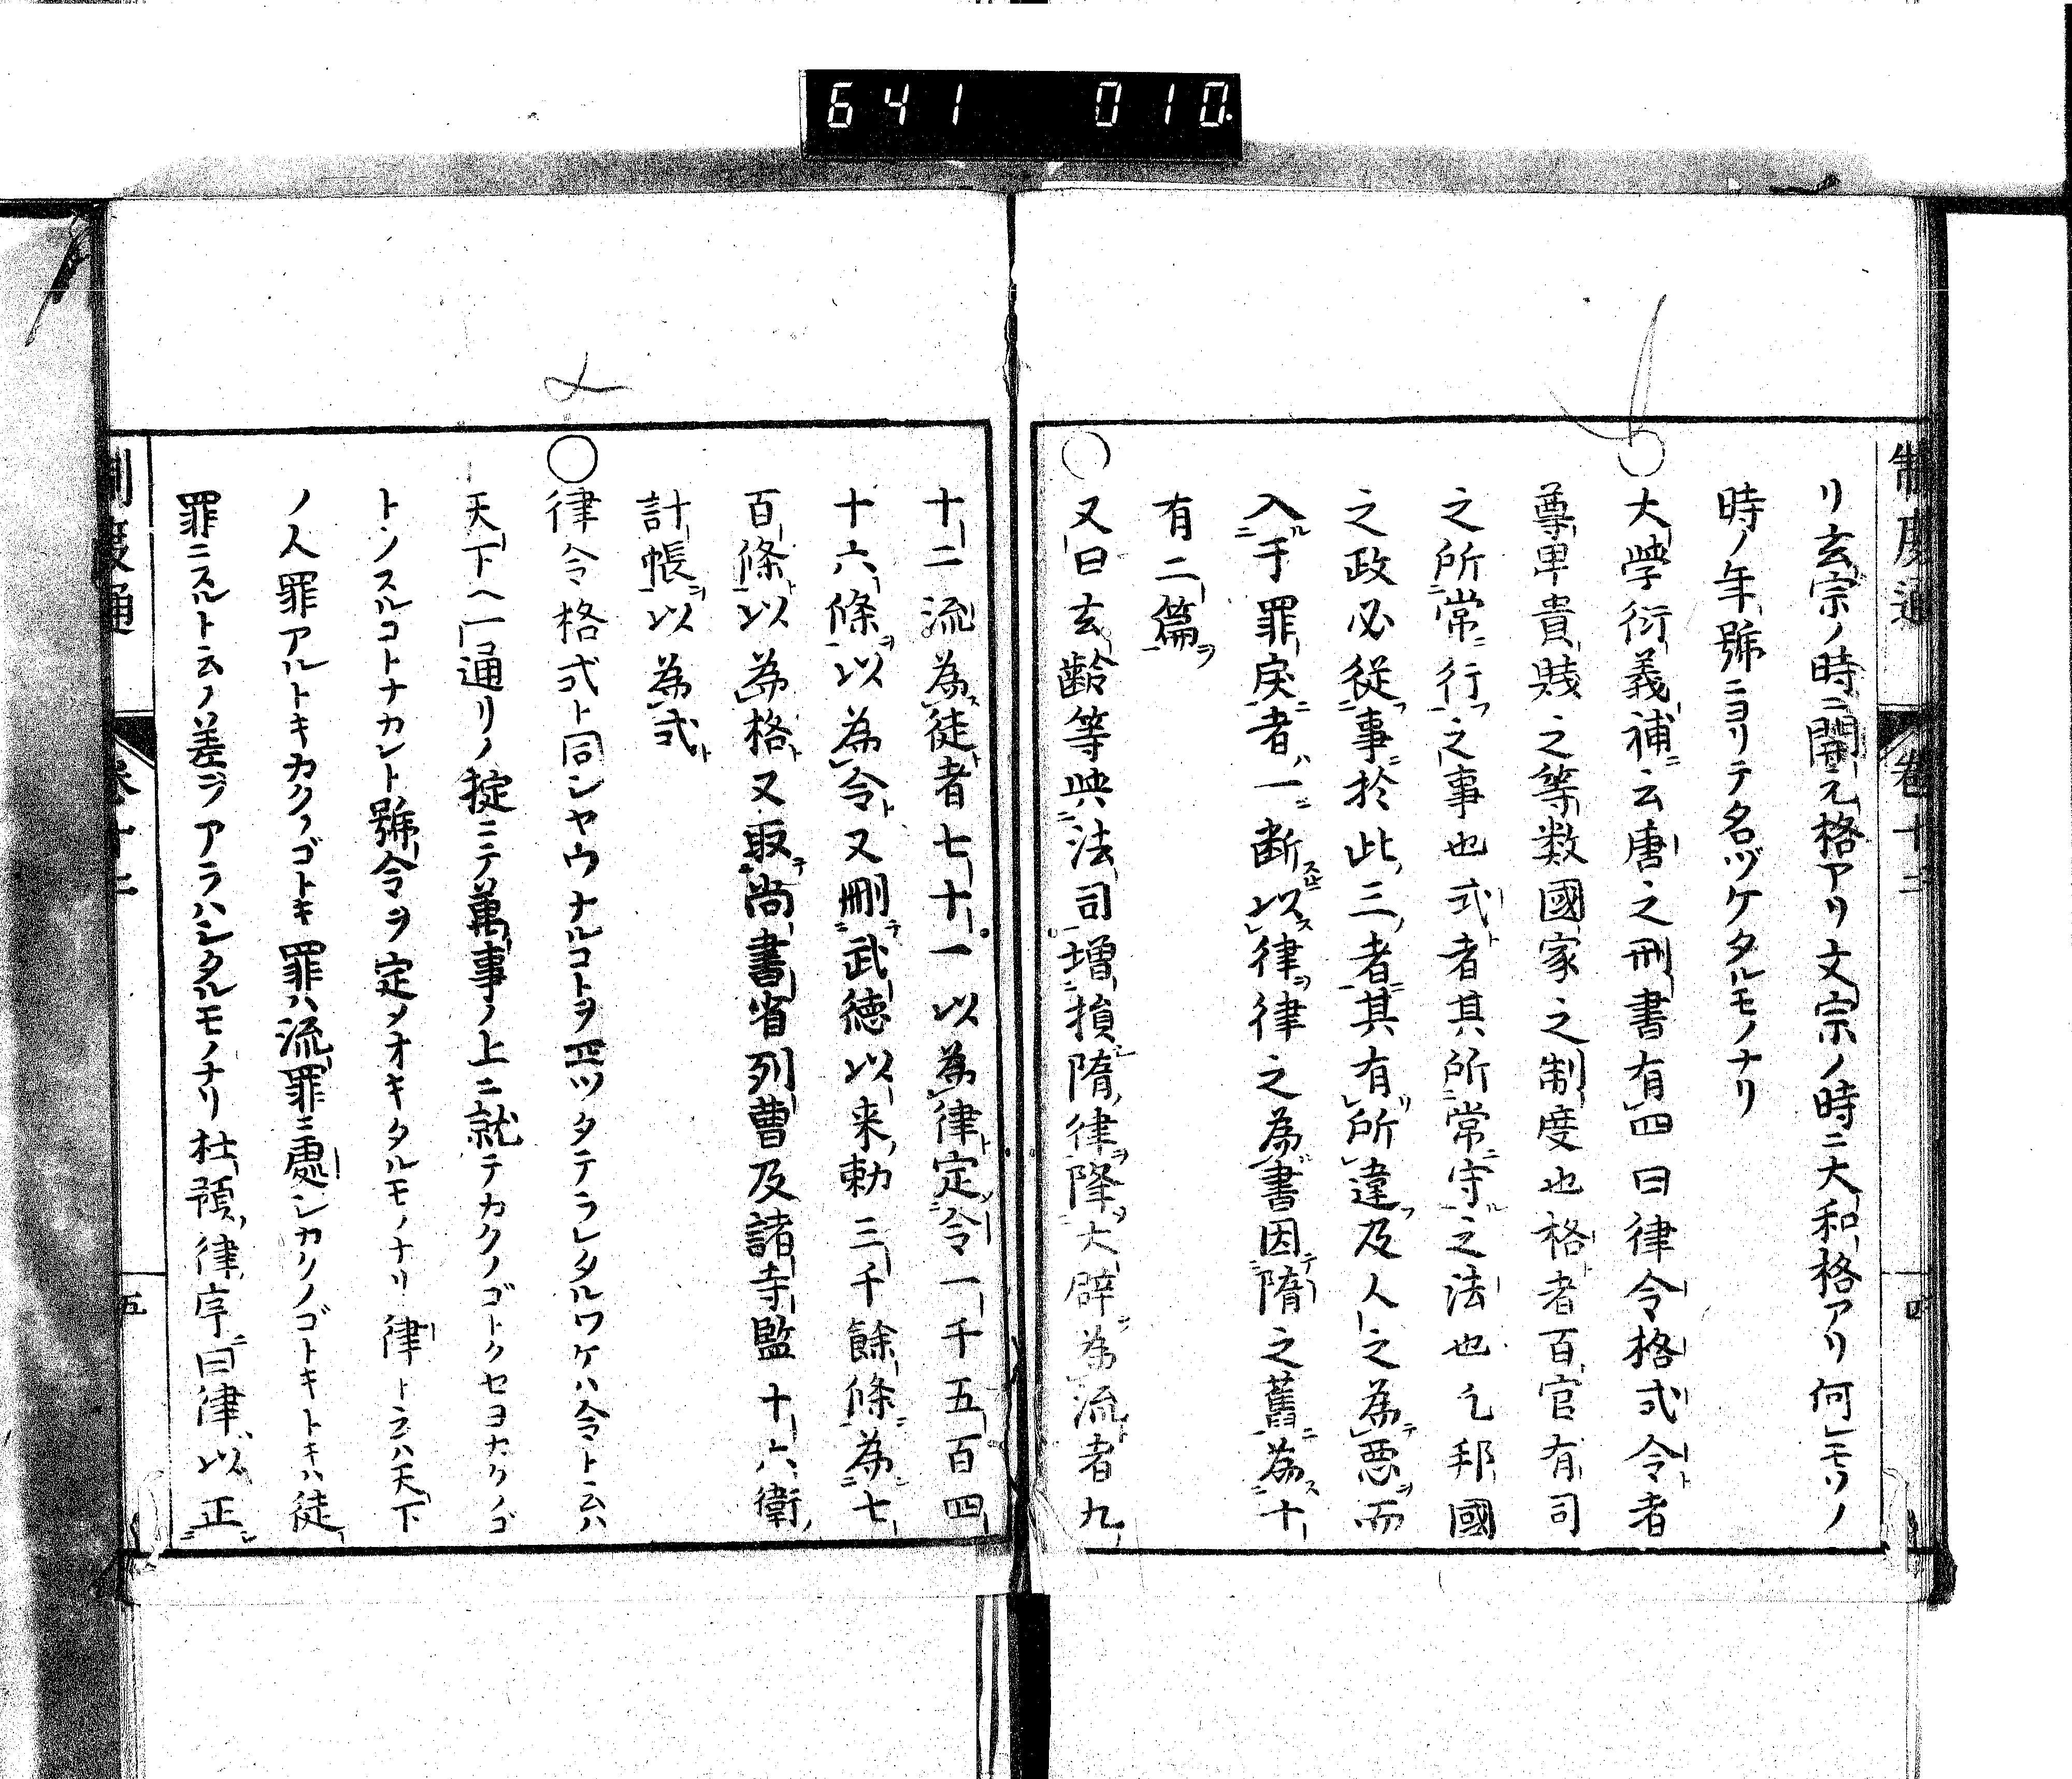 641 010.
制度通 卷十二 一四
リ玄宗ノ時ニ開元格アリ文宗ノ時ニ大和格アリ何レモソノ
時ノ年號ニヨリテ名ヅケタルモノナリ
○大學衍義補ニ云唐之刑書有四曰律令格式令者
尊卑貴賎之等数國家之制度也格者百官有司
之所常行之事也式者其所常守之法也凢邦國
之政必從事於此三者其有所違及人之為悪而
入于罪戻者一断以律律之為書因隋之舊為十
有二篇
○又曰玄齢等與法司増損隋律降大辟為流者九
十二流為徒者七十一以為律定令一千五百四
十六條以為令又刪武徳以来勅三千餘條為七
百條以為格又取尚書省列曹及諸寺監十六衛
計帳以為式
○律令格式ト同シヤウナルコトヲ四ツタテラレタルワケハ令ト云ハ
天下ヘ一通リノ掟ニテ萬事ノ上ニ就テカクノゴトクセヨカクノゴ
トンスルコトナカレト號令ヲ定メオキタルモノナリ律ト云ハ天下
ノ人罪アルトキカクノゴトキ罪ハ流罪ニ處シカクノゴトキトキハ徒
罪ニスルト云ノ差ヲアラハシタルモノナリ杜預律序曰律以正
制度通 卷十二 五